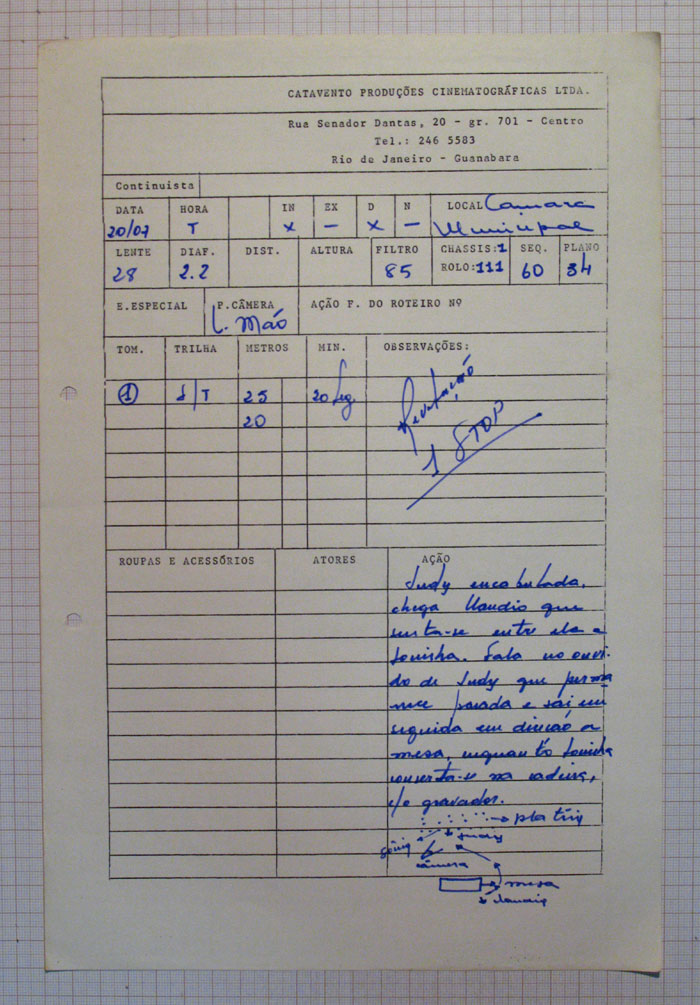 CATAVENTO PRODUÇÕES CINEMATOGRÁFICAS LTDA.
Rua Senador Dantas, 20 - gr. 701 - Centro
Tel.: 246 5583
Rio de Janeiro - Guanabara
Continuista
DATA HORA IN EX D N LOCAL Câmara
20/07 T x – x – Municipal
LENTE DIAF. DIST. ALTURA FILTRO CHASSIS:1 SEQ. PLANO
28 2.2 85 ROLO:111 60 34
E.ESPECIAL P.CÂMERA AÇÃO F. DO ROTEIRO Nº
C. Mão
TOM. TRILHA METROS MIN. OBSERVAÇÕES:
1 S/T 25 20 seg
20
1 STOP
ROUPAS E ACESSÓRIOS ATORES AÇÃO
Judy encabulada,
chega Claudio que
senta-se entre ela e
Soninha. Fala no ouvi-
do de Judy que perma
nece parada e sai em
seguida em direção a
mesa, enquanto Soninha
conserta-se na cadeira,
c/o gravador.
câmera
mesa